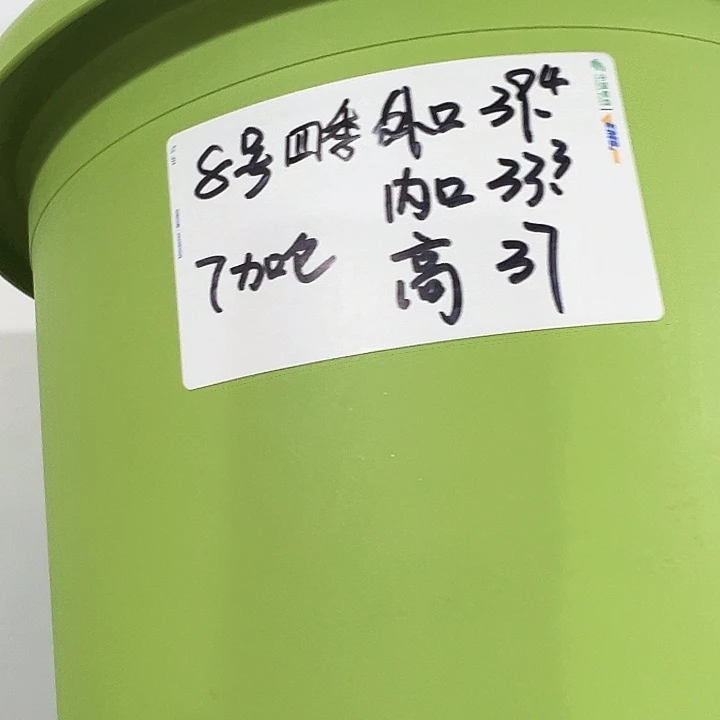 8号四季 外口 39.4
内口 33.3
7加仑 高 37